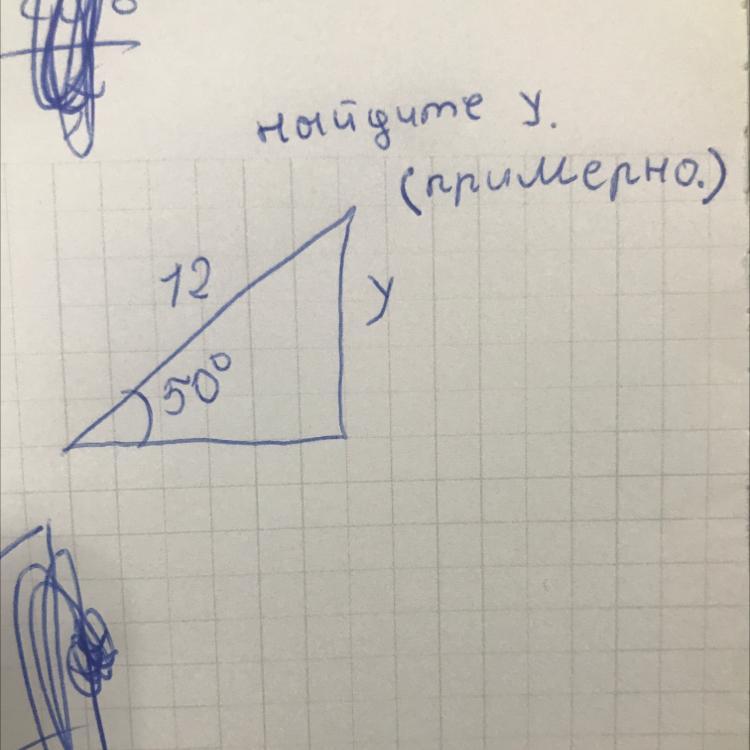 найдите y.
(примерно.)
12
y
50°